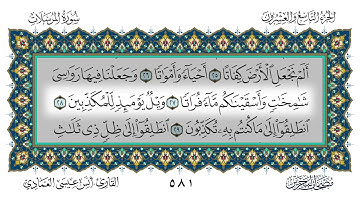 الجزء التاسع والعشرون
سورة المرسلات
أَلَمْ نَجْعَلِ ٱلْأَرْضَ كِفَاتًا ٢٥ أَحْيَآءً وَأَمْوَٰتًا ٢٦ وَجَعَلْنَا فِيهَا رَوَٰسِىَ
شَٰمِخَٰتٍ وَأَسْقَيْنَٰكُم مَّآءً فُرَاتًا ٢٧ وَيْلٌ يَوْمَئِذٍ لِّلْمُكَذِّبِينَ ٢٨
ٱنطَلِقُوٓا۟ إِلَىٰ مَا كُنتُم بِهِۦ تُكَذِّبُونَ ٢٩ ٱنطَلِقُوٓا۟ إِلَىٰ ظِلٍّ ذِى ثَلَٰثِ
٥٨١
القارئ: أنس عيسى العمادي